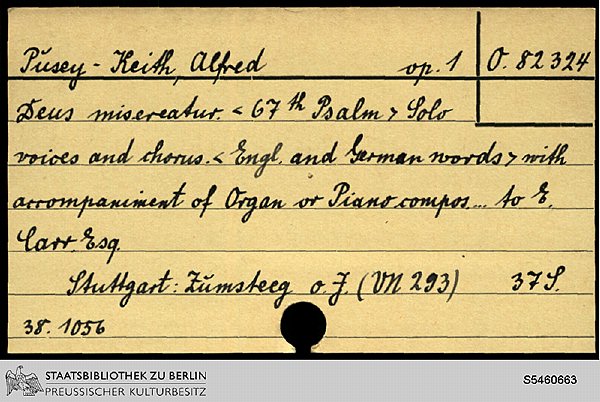 Pusey-Keith, Alfred op. 1 O. 82324
Deus misereatur. < 67th Psalm > Solo
voices and chorus. < Engl. and German words > with
accompaniment of Organ or Piano compos... to E.
Carr Esq
Stuttgart: Zumsteeg o. J. (VN 293) 37 S.
38. 1056
STAATSBIBLIOTHEK ZU BERLIN
PREUSSISCHER KULTURBESITZ
S5460663